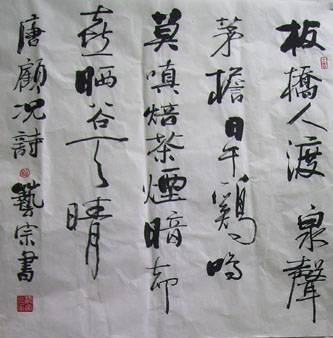 板橋人渡泉聲
茅檐日午鷄鳴
莫嗔焙茶煙暗却
喜晒谷天晴
唐顧况詩藝宗書